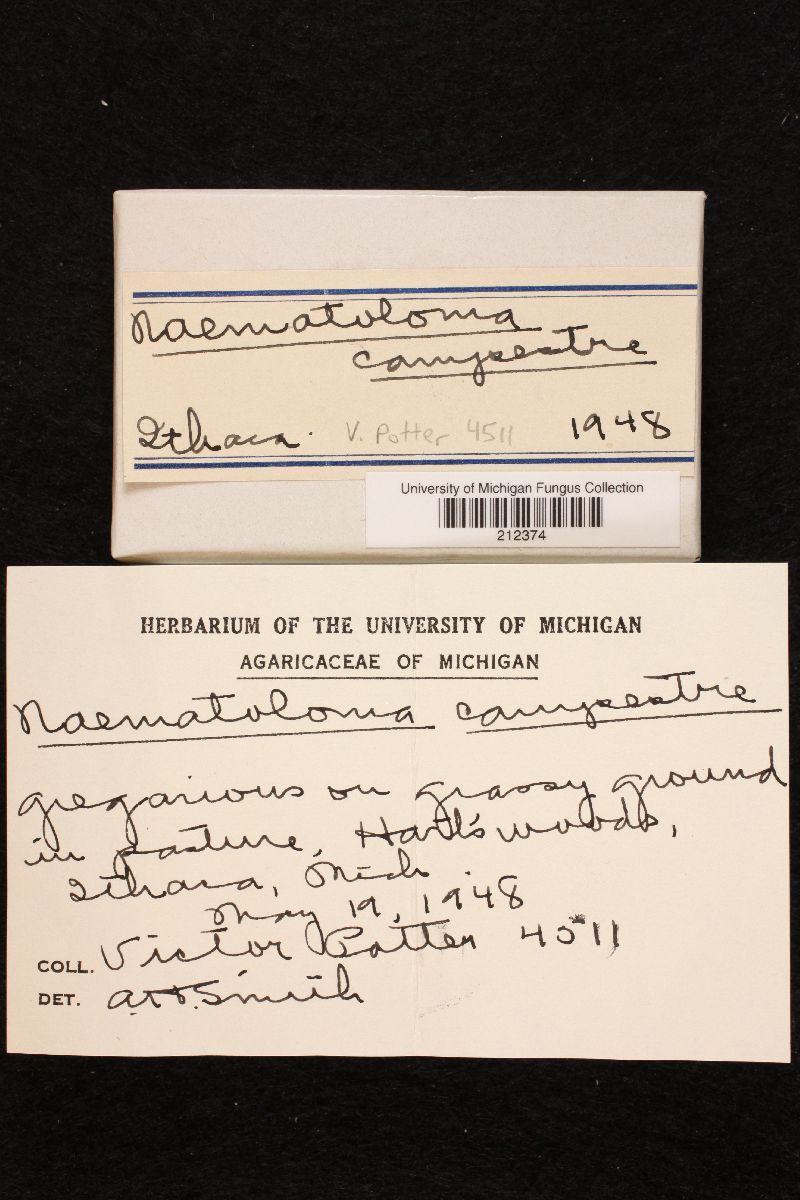 Naematoloma
campestre
Ithaca. V. Potter 4511 1948
University of Michigan Fungus Collection
212374
HERBARIUM OF THE UNIVERSITY OF MICHIGAN
AGARICACEAE OF MICHIGAN
Naematoloma campestre
gregarious on grassy ground
in pasture, Hartl's woods,
Ithaca, Mich.
May 19, 1948
COLL. Victor Potter 4511
DET. A.H. Smith